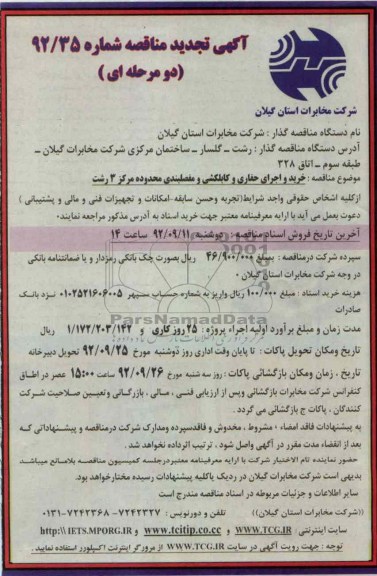 آگهی تجدید مناقصه شماره ۹۲/۳۵
(دو مرحله ای)
شرکت مخابرات استان گیلان
نام دستگاه مناقصه گذار : شرکت مخابرات استان گیلان
آدرس دستگاه مناقصه گذار : رشت - گلسار - ساختمان مرکزی شرکت مخابرات گیلان -
طبقه سوم - اتاق ۳۲۸
موضوع مناقصه : خرید و اجرای حفاری و کابلکشی و مفصلبندی محدوده مرکز ۳ رشت
ازکلیه اشخاص حقوقی واجد شرایط(تجربه وحسن سابقه-امکانات و تجهیزات فنی و مالی و پشتیبانی )
دعوت بعمل می آید با ارایه معرفینامه معتبر جهت خرید اسناد به آدرس مذکور مراجعه نمایند.
آخرین تاریخ فروش اسناد مناقصه : دوشنبه ۹۲/۰۹/۱۱ ساعت ۱۴
سپرده شرکت درمناقصه : بمبلغ ۴۶/۹۰۰/۰۰۰ ریال بصورت چک بانکی رمزدار و یا ضمانتنامه بانکی
در وجه شرکت مخابرات استان گیلان
هزینه خرید اسناد : مبلغ ۱۰۰/۰۰۰ ریال واریز به شماره حساب سپهر ۰۱۰۲۵۲۱۶۰۶۰۰۵ نزد بانک
صادرات
مدت زمان و مبلغ برآورد اولیه اجراء پروژه : ۲۵ روز کاری و ۱/۱۷۲/۲۰۳/۱۴۲ ریال
تاریخ ومکان تحویل پاکات : تا پایان وقت اداری روز دوشنبه مورخ ۹۲/۰۹/۲۵ تحویل دبیرخانه
تاریخ ، زمان ومکان بازگشائی پاکات : روز سه شنبه مورخ ۹۲/۰۹/۲۶ ساعت ۱۵:۰۰ عصر در اطاق
کنفرانس شرکت مخابرات بازگشائی وپس از ارزیابی فنی ، مالی ، بازرگانی وتعیین صلاحیت شرکت
کنندگان ، پاکات ج بازگشائی می گردد .
به پیشنهادات فاقد امضاء ، مشروط ، مخدوش و فاقدسپرده ومدارک شرکت درمناقصه و پیشنهاداتی که
بعد از انقضاء مدت مقرر در آگهی واصل شود ، ترتیب اثرداده نخواهد شد .
حضور نماینده تام الاختیار شرکت با ارایه معرفینامه معتبردرجلسه کمیسیون مناقصه بلامانع میباشد
بدیهی است شرکت مخابرات گیلان در ردیک یاکلیه پیشنهادات رسیده مختارخواهد بود.
سایر اطلاعات و جزئیات مربوطه در اسناد مناقصه مندرج است
((شرکت مخابرات استان گیلان)) تلفن و دورنویس : ۷۲۴۲۳۲۷ - ۷۲۴۲۳۶۸-۰۱۳۱
سایت اینترنتی : WWW.TCG.IR و www.tcitip.co.cc و http:\\ IETS.MPORG.IR
توجه : جهت رویت آگهی در سایت WWW.TCG.IR از مرورگر اینترنت اکسپلورر استفاده نمایید .
ParsNamadData